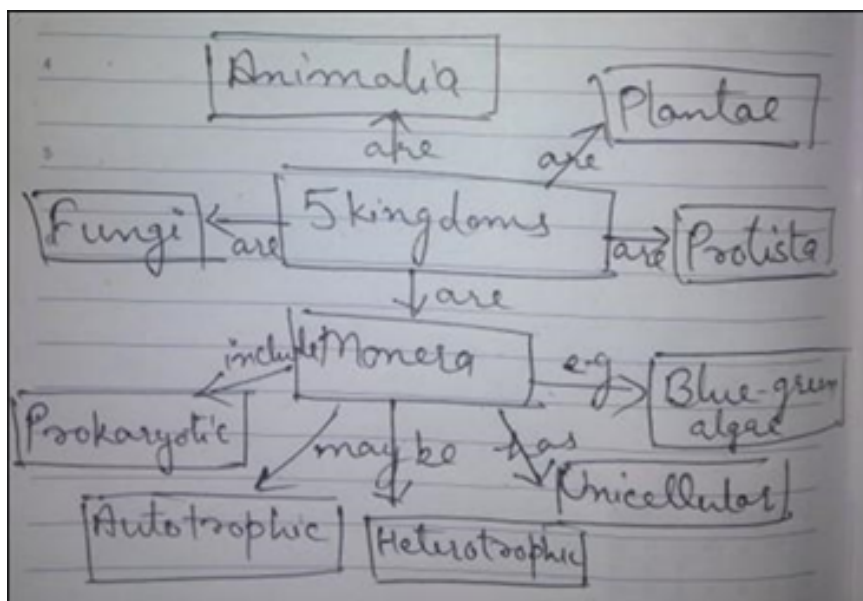 Animalia
Plantae
are
are
5 kingdoms
Fungi
are
are
Protista
are
include
Monera
e-g
Blue-green
algae
Prokaryotic
may be
has
Unicellular
Autotrophic
Heterotrophic